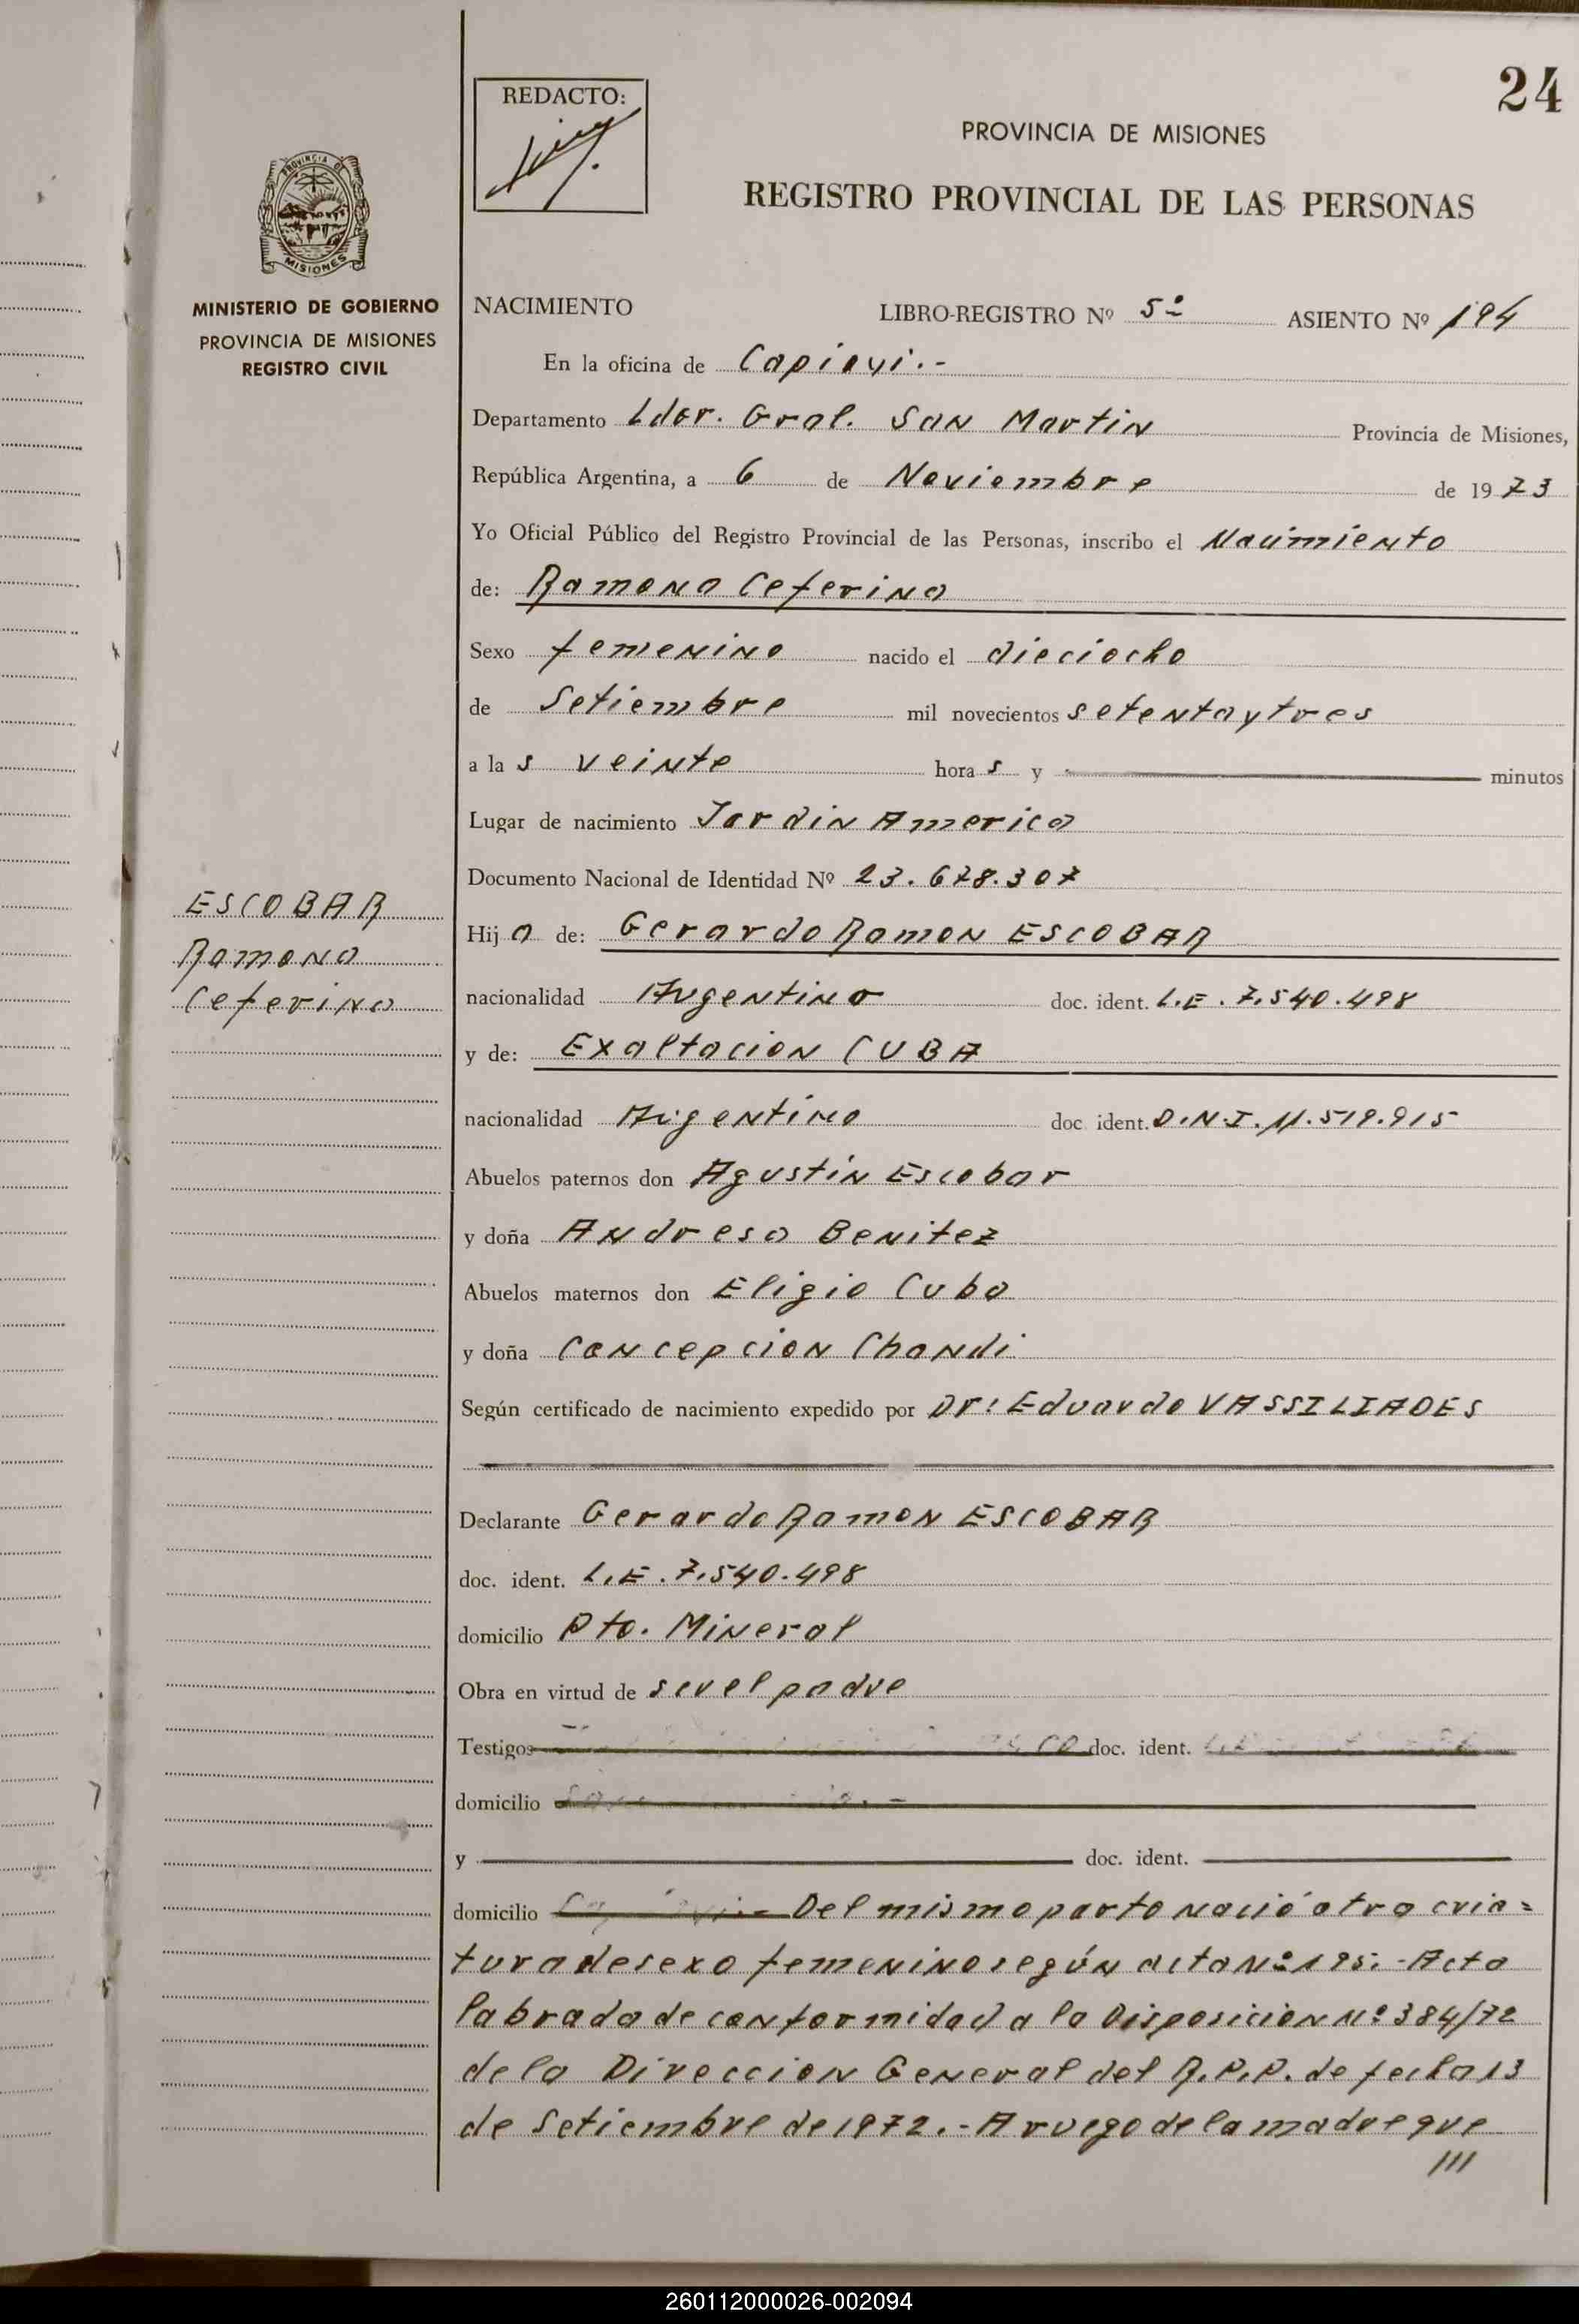 24
REDACTO:
PROVINCIA DE MISIONES
REGISTRO PROVINCIAL DE LAS PERSONAS
PROVINCIA DE
MISIONES
MINISTERIO DE GOBIERNO
PROVINCIA DE MISIONES
REGISTRO CIVIL
NACIMIENTO LIBRO-REGISTRO Nº 5º ASIENTO Nº 194
En la oficina de Capiovi.-
Departamento Ldor. Gral. San Martin Provincia de Misiones,
República Argentina, a 6 de Noviembre de 1973
Yo Oficial Público del Registro Provincial de las Personas, inscribo el Nacimiento
de: Ramona Ceferina
Sexo femenino nacido el dieciocho
de Setiembre mil novecientos setenta y tres
a las veinte horas y minutos
Lugar de nacimiento Jardin America
Documento Nacional de Identidad Nº 23.678.307
ESCOBAR
Ramona
Ceferina
Hija de: Gerardo Ramon ESCOBAR
nacionalidad Argentino doc. ident. L.E. 7.540.498
y de: Exaltacion CUBA
nacionalidad Argentina doc. ident. D.N.I. 11.519.915
Abuelos paternos don Agustin Escobar
y doña Andresa Benitez
Abuelos maternos don Eligio Cuba
y doña Concepcion Chandi
Según certificado de nacimiento expedido por Dr: Eduardo VASSILIADES
Declarante Gerardo Ramon ESCOBAR
doc. ident. L.E. 7.540.498
domicilio Pto. Mineral
Obra en virtud de ser el padre
Testigos doc. ident.
domicilio
y doc. ident.
domicilio Del mismo parto nació otra cria=
tura de sexo femenino según acta Nº 195.- Acta
labrada de conformidad a la Disposicion Nº 384/72
de la Direccion General del R.P.P. de fecha 13
de Setiembre de 1972.- A ruego de la madre que
///
260112000026-002094